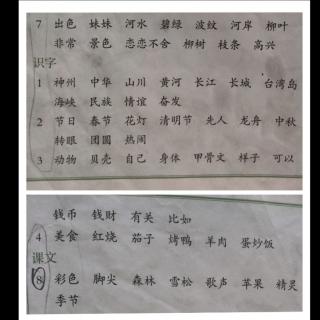 7 出色 妹妹 河水 碧绿 波纹 河岸 柳叶
非常 景色 恋恋不舍 柳树 枝条 高兴
识字
1 神州 中华 山川 黄河 长江 长城 台湾岛
海峡 民族 情谊 奋发
2 节日 春节 花灯 清明节 先人 龙舟 中秋
转眼 团圆 热闹
3 动物 贝壳 自己 身体 甲骨文 样子 可以
钱币 钱财 有关 比如
4 美食 红烧 茄子 烤鸭 羊肉 蛋炒饭
课文
8 彩色 脚尖 森林 雪松 歌声 苹果 精灵
季节